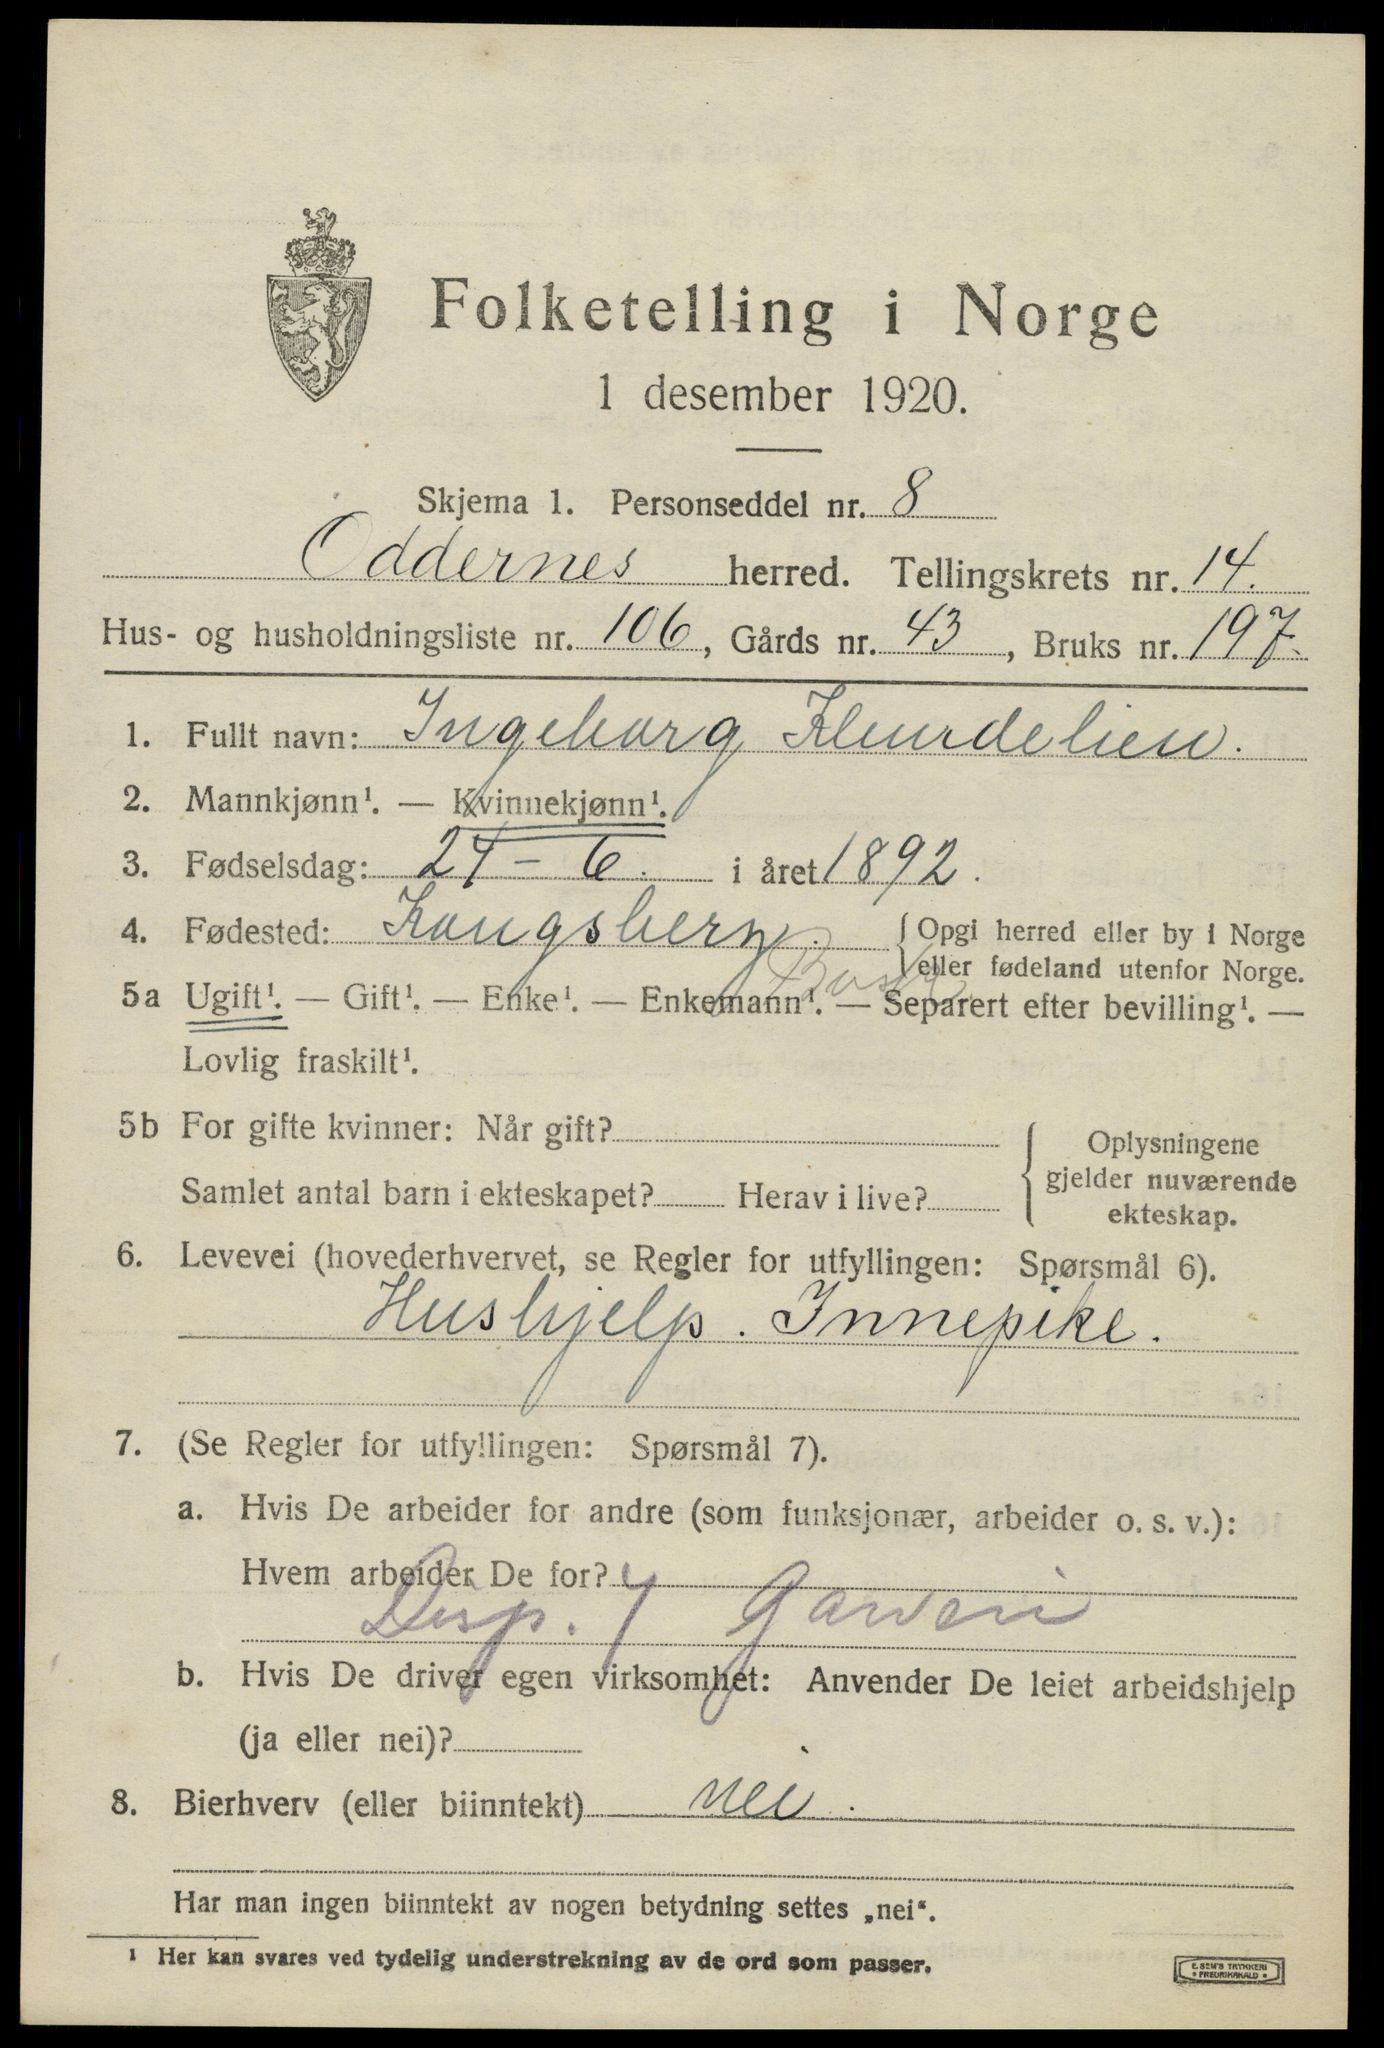 Folketelling i Norge
1 desember 1920.
Skjema 1. Personseddel nr. 8
Oddernes herred. Tellingskrets nr. 14.
Hus- og husholdningsliste nr. 106, Gårds nr. 43, Bruks nr. 197.
1. Fullt navn: Ingeborg
2. Mannkjønn¹. — Kvinnekjønn¹.
3. Fødselsdag: 24 - 6. i året 1892.
4. Fødested: Kongsberg. { Opgi herred eller by i Norge
eller fødeland utenfor Norge.
Busk
5a Ugift¹. — Gift¹. — Enke¹. — Enkemann¹. — Separert efter bevilling¹. —
Lovlig fraskilt¹.
5b For gifte kvinner: Når gift?
Samlet antal barn i ekteskapet? Herav i live?
{ Oplysningene
gjelder nuværende
ekteskap.
6. Levevei (hovederhvervet, se Regler for utfyllingen: Spørsmål 6).
Hushjelp. Innepike.
7. (Se Regler for utfyllingen: Spørsmål 7).
a. Hvis De arbeider for andre (som funksjonær, arbeider o. s. v.):
Hvem arbeider De for?
Disp. Garveri
b. Hvis De driver egen virksomhet: Anvender De leiet arbeidshjelp
(ja eller nei)?
8. Bierhverv (eller biinntekt) nei.
Har man ingen biinntekt av nogen betydning settes „nei“.
¹ Her kan svares ved tydelig understrekning av de ord som passer.
E. SEM'S TRYKKERI
• FREDRIKSHALD •